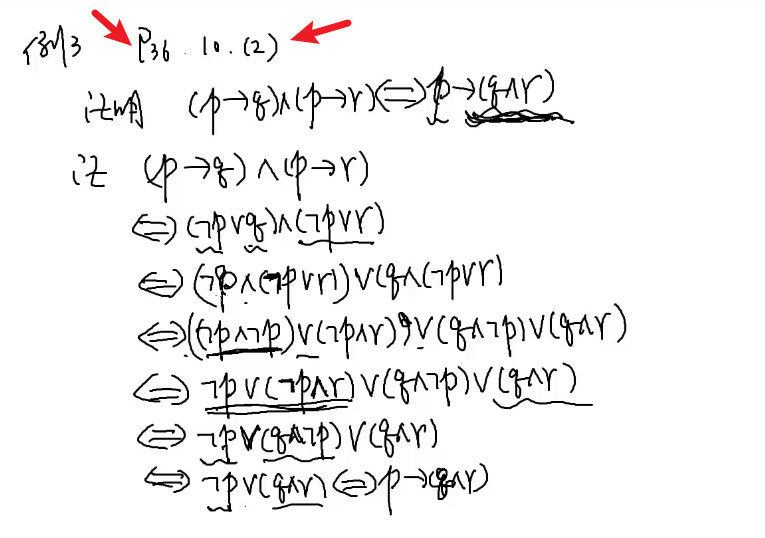 例3 P36. 10. (2)
证明 (p→q)∧(p→r)⇔p→(q∧r)
证 (p→q)∧(p→r)
⇔(¬p∨q)∧(¬p∨r)
⇔(¬p∧(¬p∨r))∨(q∧(¬p∨r)
⇔((¬p∧¬p)∨(¬p∧r))∨(q∧¬p)∨(q∧r)
⇔¬p∨(¬p∧r)∨(q∧¬p)∨(q∧r)
⇔¬p∨(q∧¬p)∨(q∧r)
⇔¬p∨(q∧r)⇔p→(q∧r)